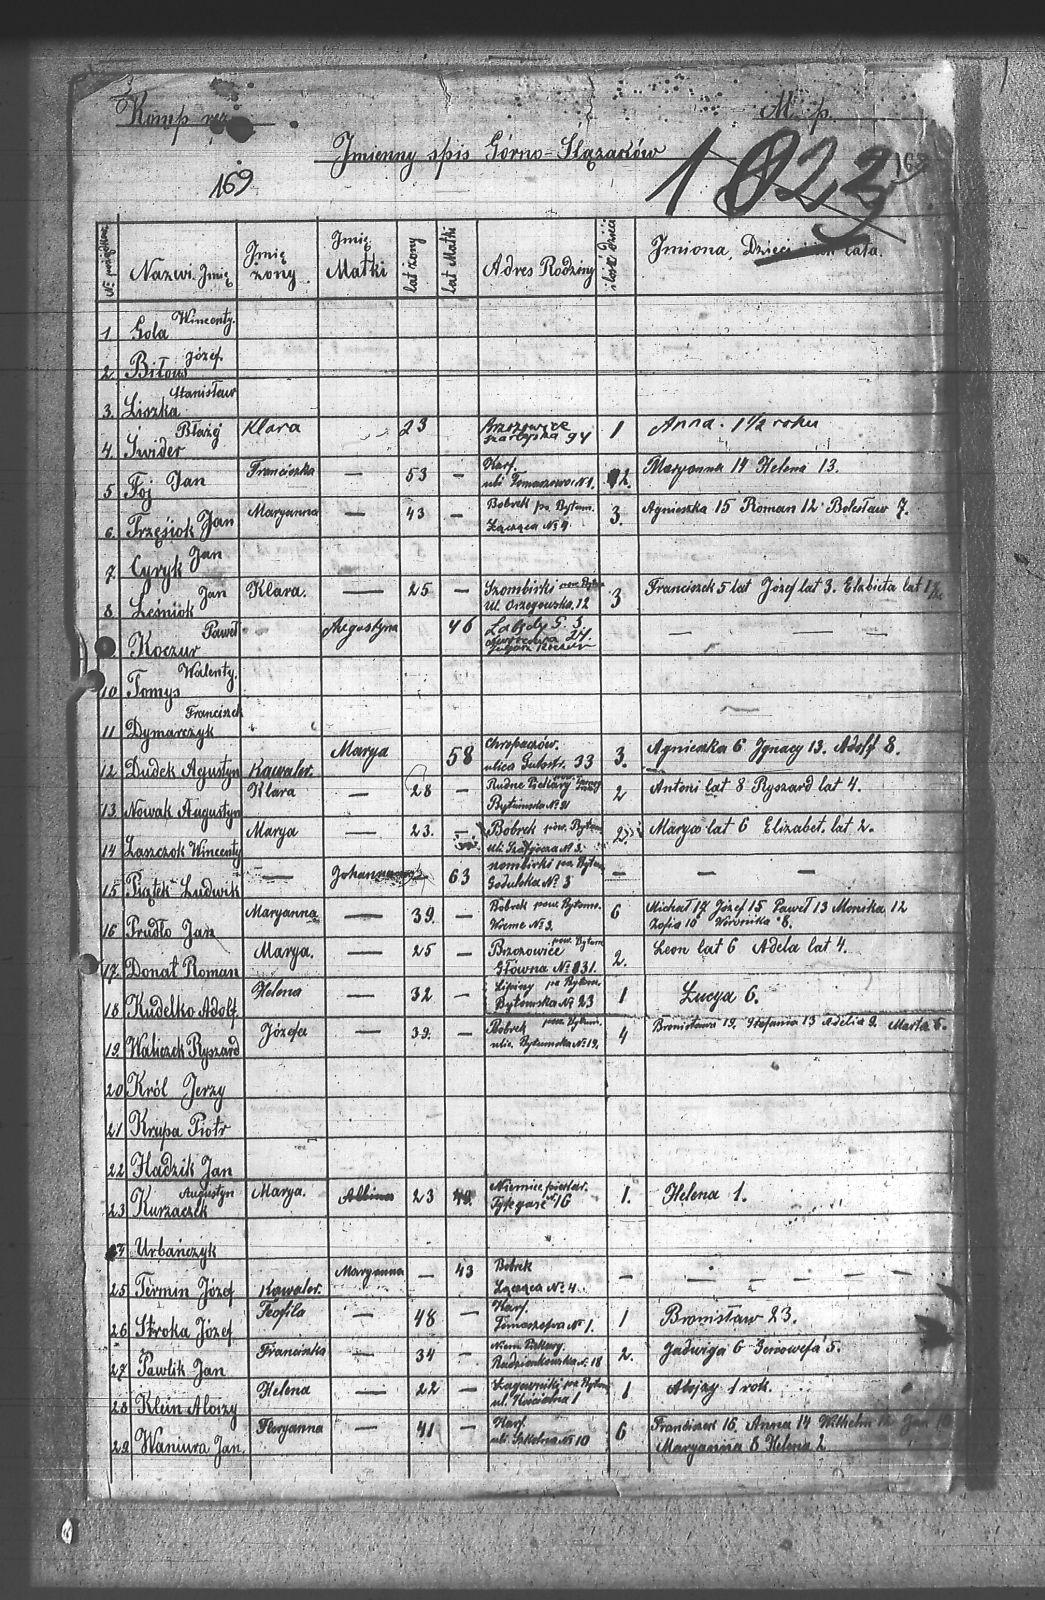 Komp nr. M. p.
Jmienny spis Górno-Slązaków
169
1023
169
Nazwi. Jmię Jmię żony Jmię Matki lat żony lat Matki Adres Rodziny ilość Dzieci Jmiona, Dzieci lata.
1 Gola Wincenty.
2. Bitow Józef.
3. Liszka Stanisław
4. Świder Błażej Klara 23 Brzozowice 94 1 Anna. 1 1/2 roku
5 Foj Jan Franciszka — 53 — Karf. ul. Tomaszewa № 1. 2. Maryanna 14 Helena 13.
6. Trzęsiok Jan Maryanna — 43 — Bobrek po. Bytom. Łącząca № 4 3. Agnieszka 15 Roman 12 Bolesław 7.
7. Cyryk Jan
8. Leśniok Jan Klara. — 25 — Szombirki pow. Bytom Ul. Orzegowska. 12 3 Franciszek 5 lat Józef lat 3. Elżbieta lat
Koczur Paweł Augustyna 46 Łabędy 24. — — — —
10 Tomys Walenty.
11 Dymarczyk Franciszek
12 Dudek Agustyn Kawaler. Marya 58 Chropaczów. ulica 33 3. Agnieszka 6 Jgnacy 13. Adolf 8.
13. Nowak Augustyn Klara — 28 — Rudne Piekary Bytomska № 91 2 Antoni lat 8 Ryszard lat 4.
14 Laszczok Wincenty Marya — 23. Bobrek pow. Bytom ul. № 3. 2 Marya lat 6 Elizabet. lat 2.
15. Piątek Ludwik — Johanna 63 Szombirki po. Bytom Godulska № 3 — — —
16 Prudło Jan Maryanna — 39. — Bobrek pow. Bytom. № 3. 6 Michał 17 Józef 15 Paweł 13 Monika 12
Zofia 10 Weronika 8.
17. Donat Roman Marya. — 25 — Brzozowice pow. Bytom Główna № 831. 2. Leon lat 6 Adela lat 4.
18 Kudełko Adolf. Helena — 32 — Lipiny po Bytom. Bytomska № 23 1 Łucya 6.
19. Waliczek Ryszard Józefa — 39. — Bobrek pow. Bytom. ulic. Bytomska № 19. 4 Bronisława 19. Stefania 13 Adelia 9. Marta 6.
20 Król Jerzy
21 Krupa Piotr
22 Hadzik Jan
23 Kurzaczek Augustyn Marya. Albina 23 49. Niemiec piekar. 16 1. Helena 1.
Urbańczyk
25 Termin Józef Kawaler. Maryanna — 43 Bobrek Łącząca № 4. — — — — — —
26 Stroka Józef Teofila — 48 — Karf. Tomaszewa № 1. 1 Bronisław 23.
27 Pawlik Jan Franciszka — 34 — Niem Piekary. Radzionkowska № 18 2. Jadwiga 6 Genowefa 5.
28 Klein Aloizy Helena — 22 — Łagiewniki po Bytom ul. Kościelna 1 1 Alojzy 1 rok.
29. Waniura Jan. Floryanna — 41 — Karf. ul. Szkolna № 10 6 Franciszek 16. Anna 14 Wilhelm
Maryanna 8 Helena 2.